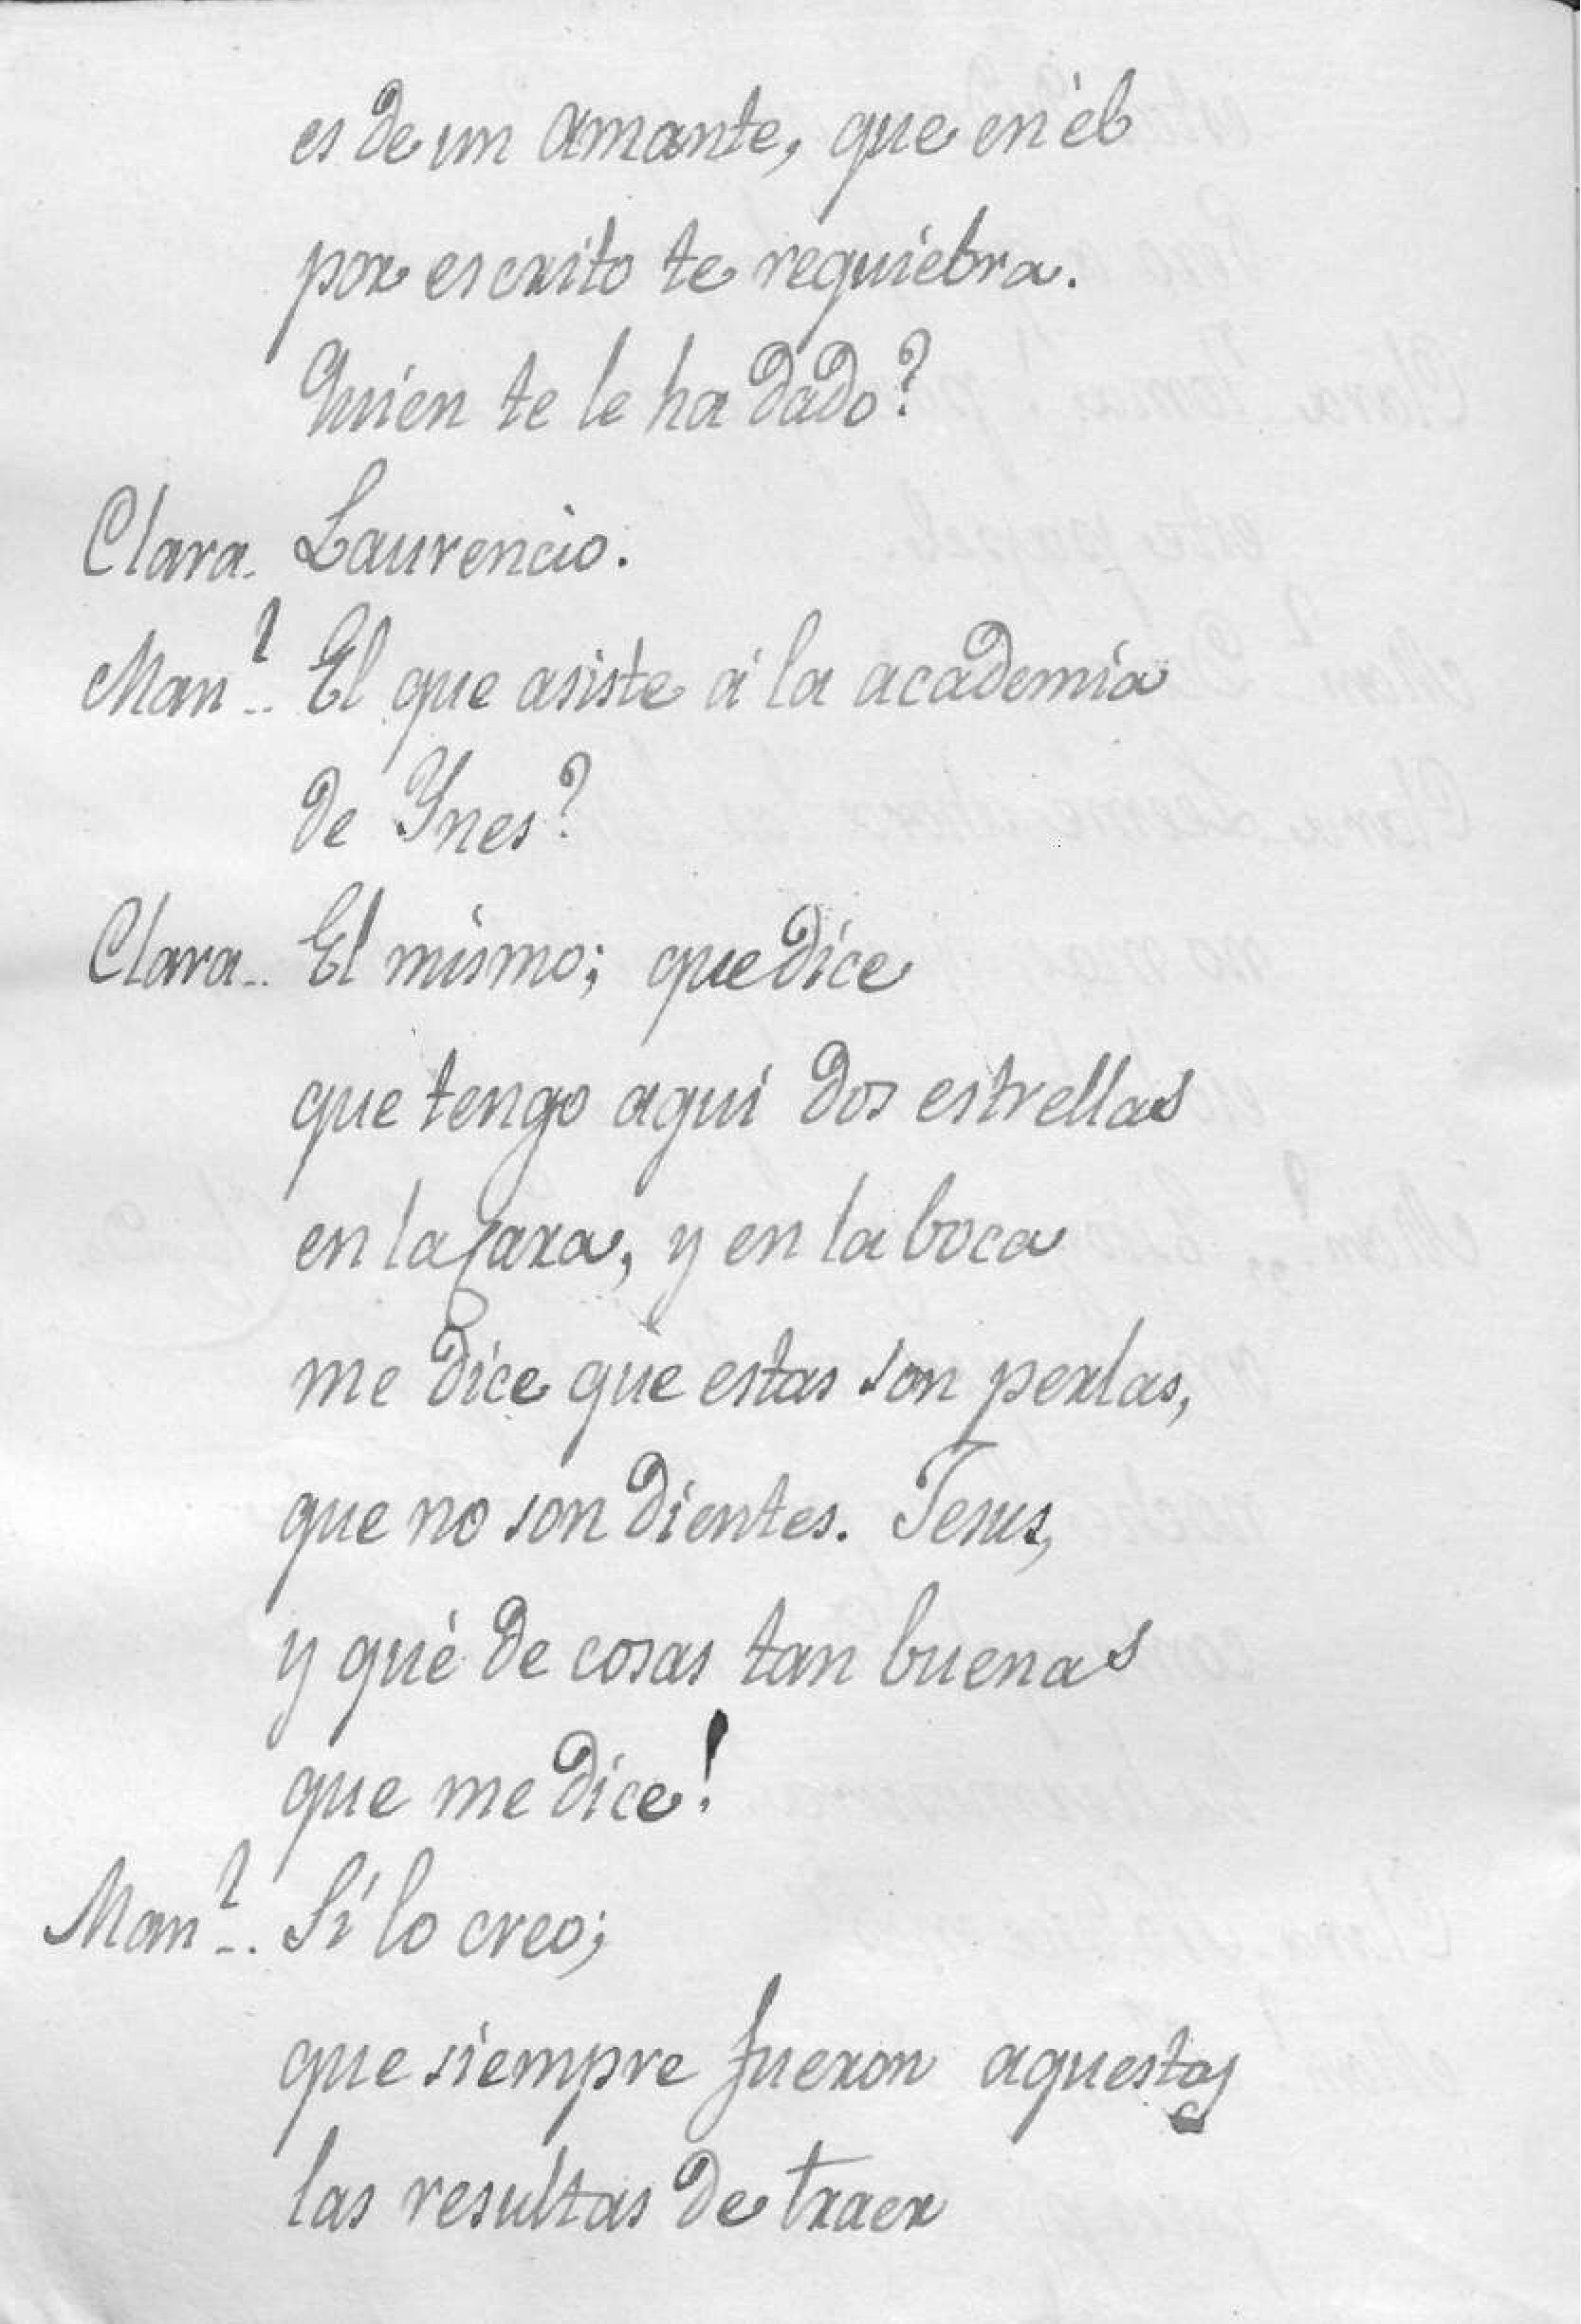 es de un amante, que en èl
por escrito te requiebra.
Quien te le ha dado?
Clara. Laurencio.
Man.l.. El que asiste á la academia
de Ynes?
Clara.. El mismo; que dice
que tengo aqui dos estrellas
en la cara, y en la boca
me dice que estas son perlas,
que no son dientes. Jesus,
y què de cosas tan buenas
que me dice!
Man.l.. Sí lo creo;
que siempre fueron aquestas
las resultas de traer